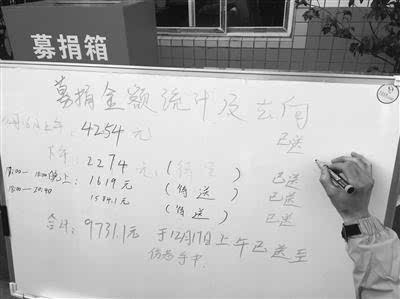 募捐箱
募捐金额统计及去向
月16日上午: 4254元 已送
下午: 2274元 (待送) 已送
17:00—18:00晚上: 1619元 (待送) 已送
18:00—20:40 1584.1元 (待送) 已送
合计: 9731.1元 于12月17日上午已送至
伤者手中.